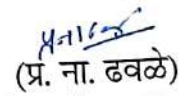 (प्र. ना. ढवळे)